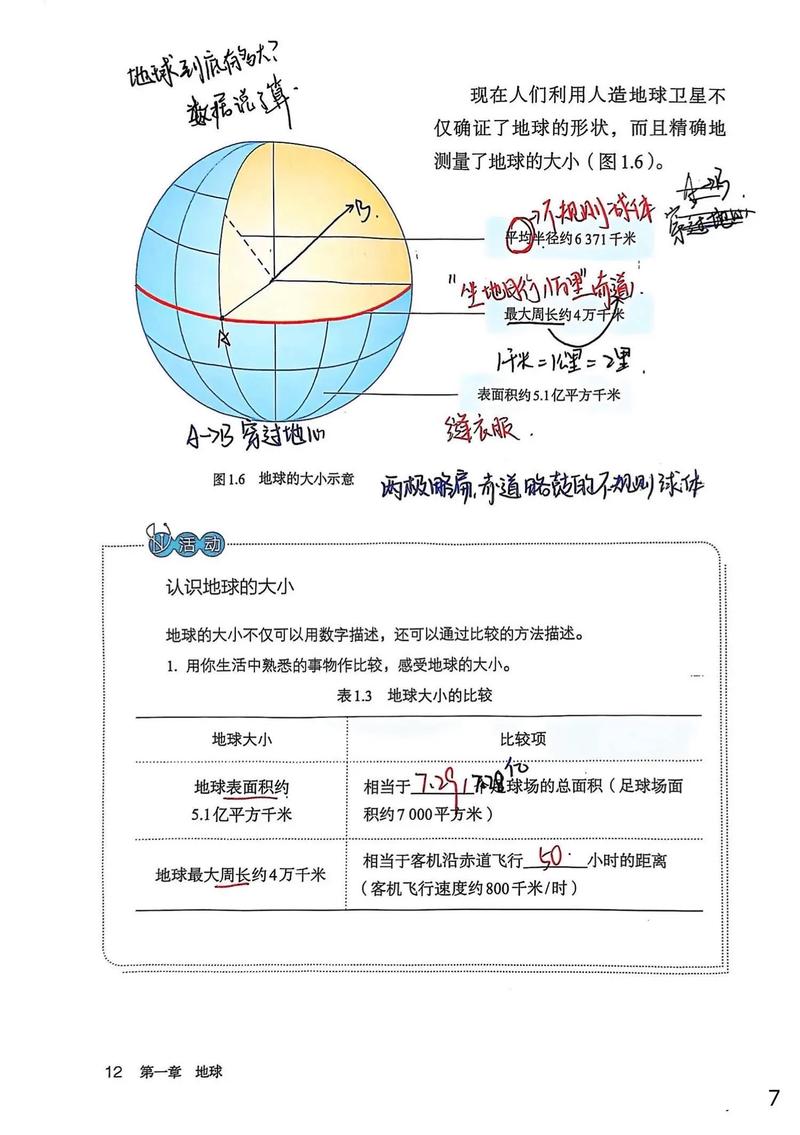 地球到底有多大?
数据说了算.
现在人们利用人造地球卫星不
仅确证了地球的形状，而且精确地
测量了地球的大小（图1.6）。
A→B
不规则球体
平均半径约6 371千米
B.
"坐地日行八万里"赤道.
最大周长约4万千米
A
1千米=1公里=2里.
表面积约5.1亿平方千米
A→B 穿过地心
缝衣服.
图1.6 地球的大小示意
两极略扁,赤道略鼓的不规则球体
活动
认识地球的大小
地球的大小不仅可以用数字描述，还可以通过比较的方法描述。
1. 用你生活中熟悉的事物作比较，感受地球的大小。
表1.3 地球大小的比较
地球大小 比较项
地球表面积约
5.1亿平方千米
相当于7.29 7.28亿个足球场的总面积（足球场面
积约7 000平方米）
地球最大周长约4万千米
相当于客机沿赤道飞行50.小时的距离
（客机飞行速度约800千米/时）
12 第一章 地球
7